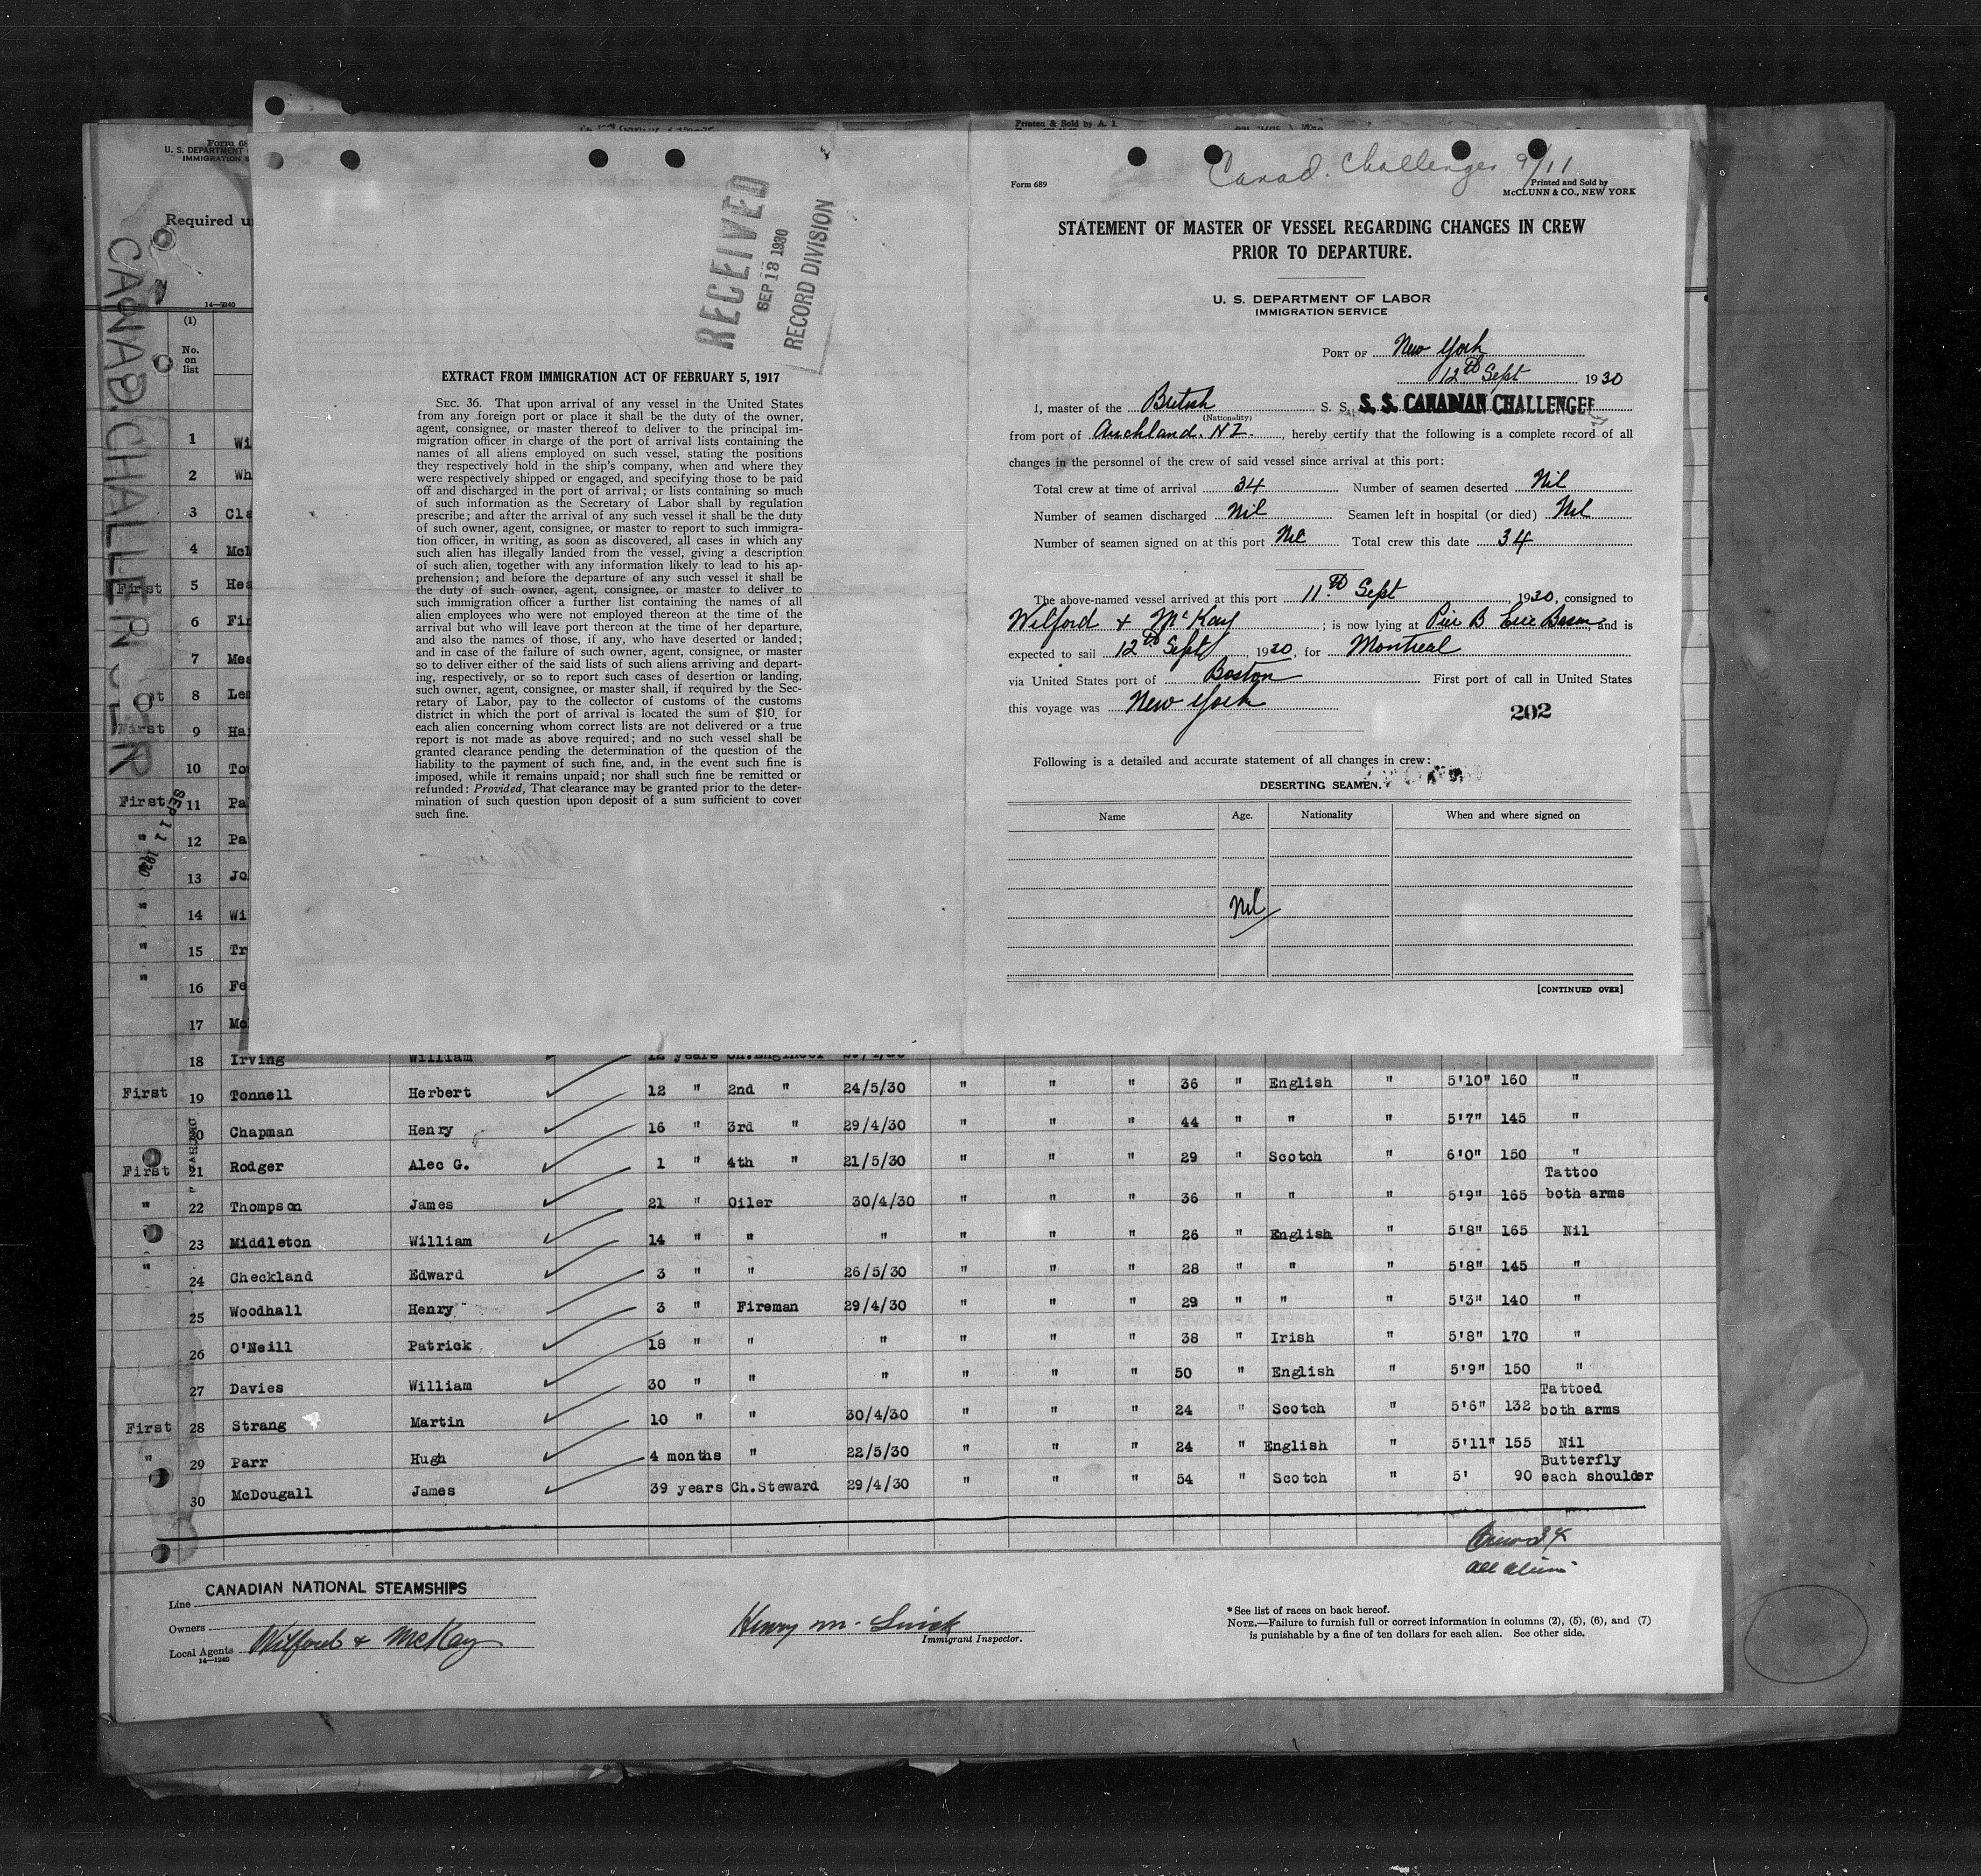 Form 68
U. S. DEPARTMENT
IMMIGRATION S
Required u
14—1240
(1)
No.
on
list
CANAD. CHALLENGER
SEP 11 1930
1 Wi
2 Wh
3 Cla
4 McM
First 5 Hea
6 Fir
7 Mea
8 Lem
First 9 Ha
10 To
First 11 Pa
" 12 Pa
13 Jo
" 14 Wi
" 15 Tr
" 16 Fe
17 Mc
Printed & Sold by A. I.
RECEIVED
SEP 18 1930
RECORD DIVISION
EXTRACT FROM IMMIGRATION ACT OF FEBRUARY 5, 1917
SEC. 36. That upon arrival of any vessel in the United States
from any foreign port or place it shall be the duty of the owner,
agent, consignee, or master thereof to deliver to the principal im-
migration officer in charge of the port of arrival lists containing the
names of all aliens employed on such vessel, stating the positions
they respectively hold in the ship's company, when and where they
were respectively shipped or engaged, and specifying those to be paid
off and discharged in the port of arrival; or lists containing so much
of such information as the Secretary of Labor shall by regulation
prescribe; and after the arrival of any such vessel it shall be the duty
of such owner, agent, consignee, or master to report to such immigra-
tion officer, in writing, as soon as discovered, all cases in which any
such alien has illegally landed from the vessel, giving a description
of such alien, together with any information likely to lead to his ap-
prehension; and before the departure of any such vessel it shall be
the duty of such owner, agent, consignee, or master to deliver to
such immigration officer a further list containing the names of all
alien employees who were not employed thereon at the time of the
arrival but who will leave port thereon at the time of her departure,
and also the names of those, if any, who have deserted or landed;
and in case of the failure of such owner, agent, consignee, or master
so to deliver either of the said lists of such aliens arriving and depart-
ing, respectively, or so to report such cases of desertion or landing,
such owner, agent, consignee, or master shall, if required by the Sec-
retary of Labor, pay to the collector of customs of the customs
district in which the port of arrival is located the sum of $10 for
each alien concerning whom correct lists are not delivered or a true
report is not made as above required; and no such vessel shall be
granted clearance pending the determination of the question of the
liability to the payment of such fine, and, in the event such fine is
imposed, while it remains unpaid; nor shall such fine be remitted or
refunded: Provided, That clearance may be granted prior to the deter-
mination of such question upon deposit of a sum sufficient to cover
such fine.
Canad. Challenger 9/11
Form 689
Printed and Sold by
McCLUNN & CO., NEW YORK
STATEMENT OF MASTER OF VESSEL REGARDING CHANGES IN CREW
PRIOR TO DEPARTURE.
U. S. DEPARTMENT OF LABOR
IMMIGRATION SERVICE
PORT OF New York
12th Sept 1930
I, master of the British S. S. S. S. CANADIAN CHALLENGER
(Nationality)
from port of Auckland. NZ., hereby certify that the following is a complete record of all
changes in the personnel of the crew of said vessel since arrival at this port:
Total crew at time of arrival 34 Number of seamen deserted Nil
Number of seamen discharged Nil Seamen left in hospital (or died) Nil
Number of seamen signed on at this port Nil Total crew this date 34
The above-named vessel arrived at this port 11th Sept, 1930, consigned to
Wilford & McKay; is now lying at Pier B Erie Basin, and is
expected to sail 12th Sept, 1930, for Montreal
via United States port of Boston First port of call in United States
this voyage was New York
202
Following is a detailed and accurate statement of all changes in crew:
DESERTING SEAMEN.
Name Age. Nationality When and where signed on
Nil
[CONTINUED OVER]
18 Irving William 12 years Ch.Engineer 29/4/30
First 19 Tonnell Herbert 12 " 2nd " 24/5/30 " " " 36 " English " 5'10" 160 "
20 Chapman Henry 16 " 3rd " 29/4/30 " " " 44 " " " 5'7" 145 "
First 21 Rodger Alec G. 1 " 4th " 21/5/30 " " " 29 " Scotch " 6'0" 150 "
" 22 Thompson James 21 " Oiler 30/4/30 " " " 36 " " " 5'9" 165 Tattoo both arms
23 Middleton William 14 " " " " " " 26 " English " 5'8" 165 Nil
" 24 Checkland Edward 3 " " 26/5/30 " " " 28 " " " 5'8" 145 "
25 Woodhall Henry 3 " Fireman 29/4/30 " " " 29 " " " 5'3" 140 "
26 O'Neill Patrick 18 " " " " " " 38 " Irish " 5'8" 170 "
27 Davies William 30 " " " " " " 50 " English " 5'9" 150 "
First 28 Strang Martin 10 " " 30/4/30 " " " 24 " Scotch " 5'6" 132 Tattoed both arms
" 29 Parr Hugh 4 months " 22/5/30 " " " 24 " English " 5'11" 155 Nil
30 McDougall James 39 years Ch.Steward 29/4/30 " " " 54 " Scotch " 5' 90 Butterfly each shoulder
Crew 34
all aliens
Line CANADIAN NATIONAL STEAMSHIPS
Owners
Local Agents Wilford & McKay
14—1240
Henry M.
Immigrant Inspector.
* See list of races on back hereof.
NOTE.—Failure to furnish full or correct information in columns (2), (5), (6), and (7)
is punishable by a fine of ten dollars for each alien. See other side.